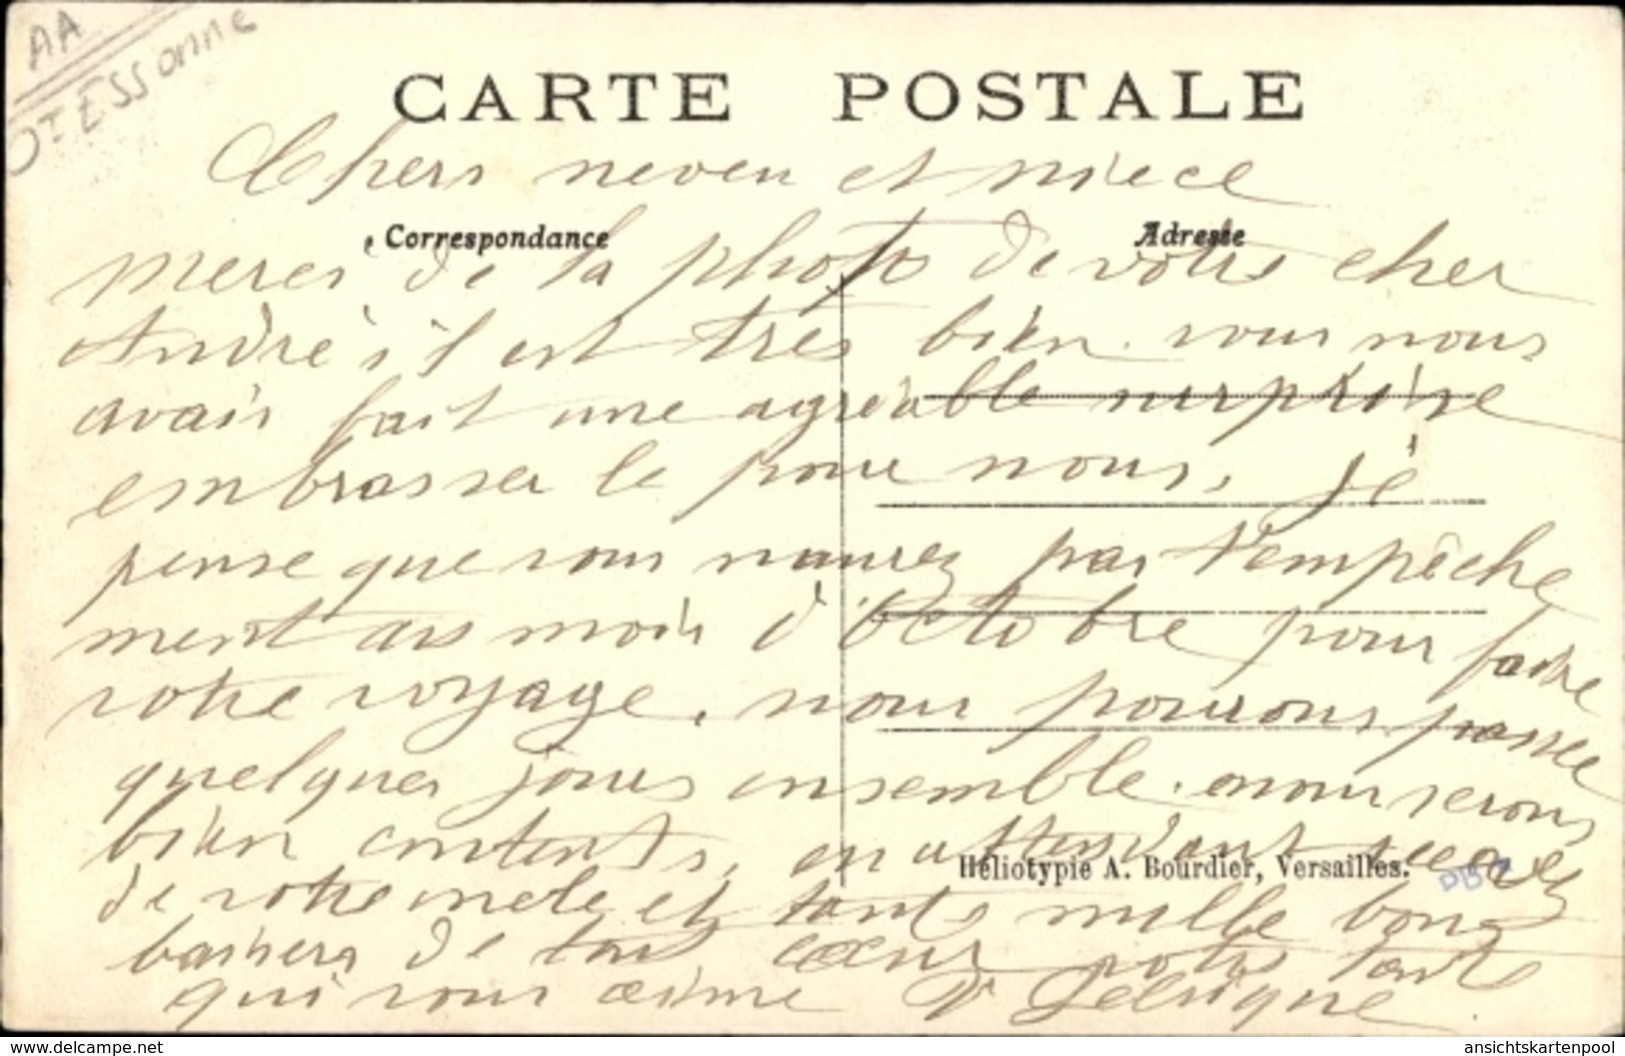 AA
Dt ESSonne
CARTE POSTALE
Chers neveu et niece
Correspondance
Adresse
merci de la photo de votre cher
André il est très bien. vous nous
avais fait une agréable surprise
embrasser le pour nous, je
pense que vous naurez pas d'empêche
ment au mois d'Octobre pour faire
votre voyage, nous pourrons passer
quelques jours ensemble. nous serons
bien contents, en attendant recevez
Héliotypie A. Bourdier, Versailles.
de votre oncle et tante mille bons
baisers de tout cœur votre tante
qui vous aime
www.delcampe.net
ansichtskartenpool